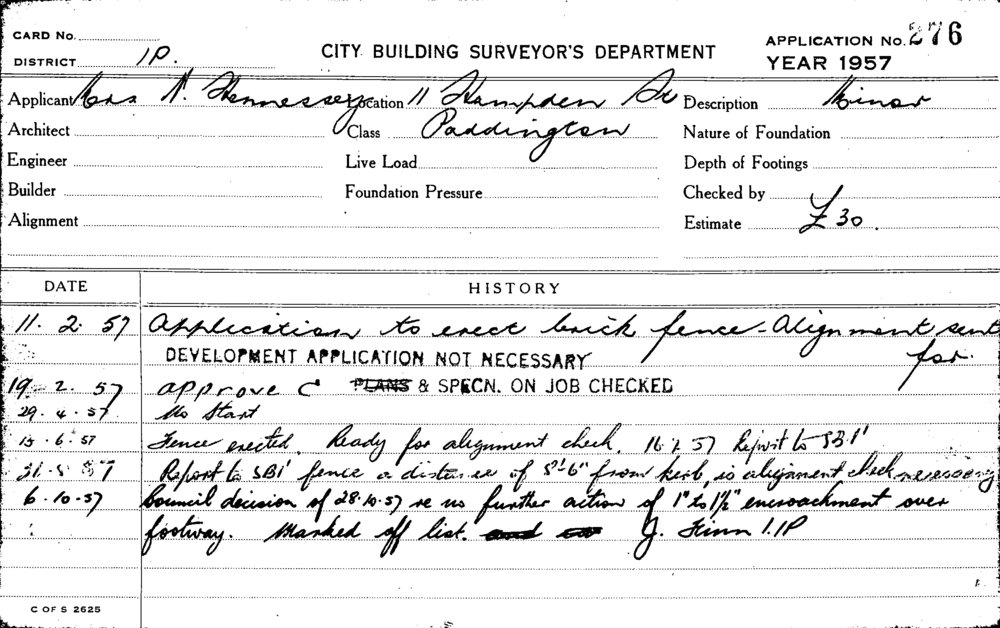 CARD No.
DISTRICT 1P.
CITY BUILDING SURVEYOR'S DEPARTMENT
APPLICATION No. 276
YEAR 1957
Applicant Mrs N. Hennessey Location 11 Hampden St Description Minor
Architect Class Paddington Nature of Foundation
Engineer Live Load Depth of Footings
Builder Foundation Pressure Checked by
Alignment Estimate £30.
DATE HISTORY
11. 2. 57 Application to erect brick fence - Alignment sent
for.
DEVELOPMENT APPLICATION NOT NECESSARY
19. 2. 57 approve C PLANS & SPECN. ON JOB CHECKED
29. 4. 57 No Start
15. 6. 57 Fence erected. Ready for alignment check. 57 Report to SBI
31. 57 Report to SBI fence a distance of from kerb, is alignment check necessary
6. 10. 57 Council decision of 28.10.57 re no further action of 1" to 1½" encroachment over
footway. Marked off list. and J. Finn 1.1P
C OF S 2625